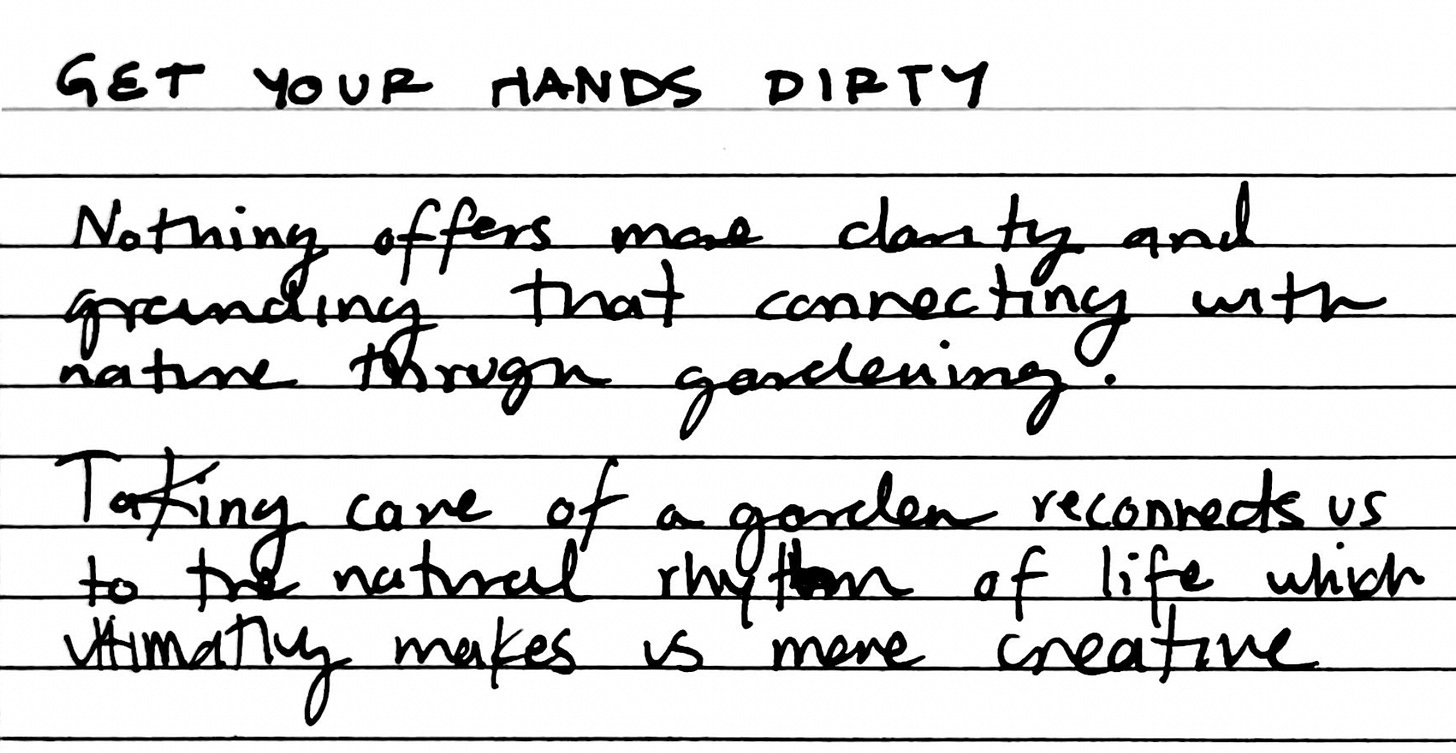 GET YOUR HANDS DIRTY
Nothing offers more clarity and
grounding that connecting with
nature through gardening.
Taking care of a garden reconnects us
to the natural rhythm of life which
ultimatly makes us more creative